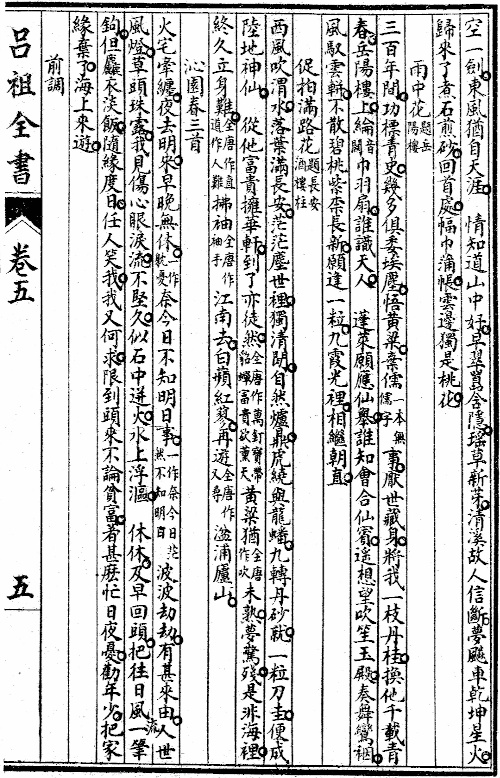 空一劍東風猶自天涯　情知道山中好早翠嵩含隱瑤草新芽清溪故人信斷夢飆車乾坤星火
歸來了煮石煎砂回首處幅巾蒲帳雲邊獨是桃花
雨中花題岳陽樓
三百年間功標青史幾多俱委埃塵悟黃粱棄儒一本無儒字事厭世藏身將我一枝丹桂換他千載青
春岳陽樓上綸音關巾羽扇誰識天人　蓬萊願應仙舉誰知會合仙賓遙想望吹笙玉殿奏舞鸞裀
風馭雲軿不散碧桃紫柰長新願逢一粒九霞光裡相繼朝真
促拍滿路花題長安酒樓柱
西風吹渭水落葉滿長安茫茫塵世裡獨清閒自然爐鼎虎繞與龍蟠九轉丹砂就一粒刀圭便成
陸地神仙　從他富貴擁華軒到了亦徒然全唐作萬釘寶帶貂蟬富貴欲薰天黃粱猶全唐作吹未熟夢驚殘是非海裡
終久立身難全唐作直道作人難拂袖全唐作袖手江南去白蘋紅蓼再遊全唐作又尋湓浦廬山
沁園春三首
火宅牽纏夜去明來早晚無休一作耽憂奈今日不知明日事一作奈今日茫然不知明日波波劫劫有甚來由人世
風燈草頭珠露我見傷心眼淚流不堅久似石中迸火水上浮漚　休休及早回頭把往日風流一筆
鉤但麤衣淡飯隨緣度日任人笑我我又何求限到頭來不論貧富著甚麼忙日夜憂勸年少把家
緣棄了海上來遊
前調
呂祖全書　卷五　五